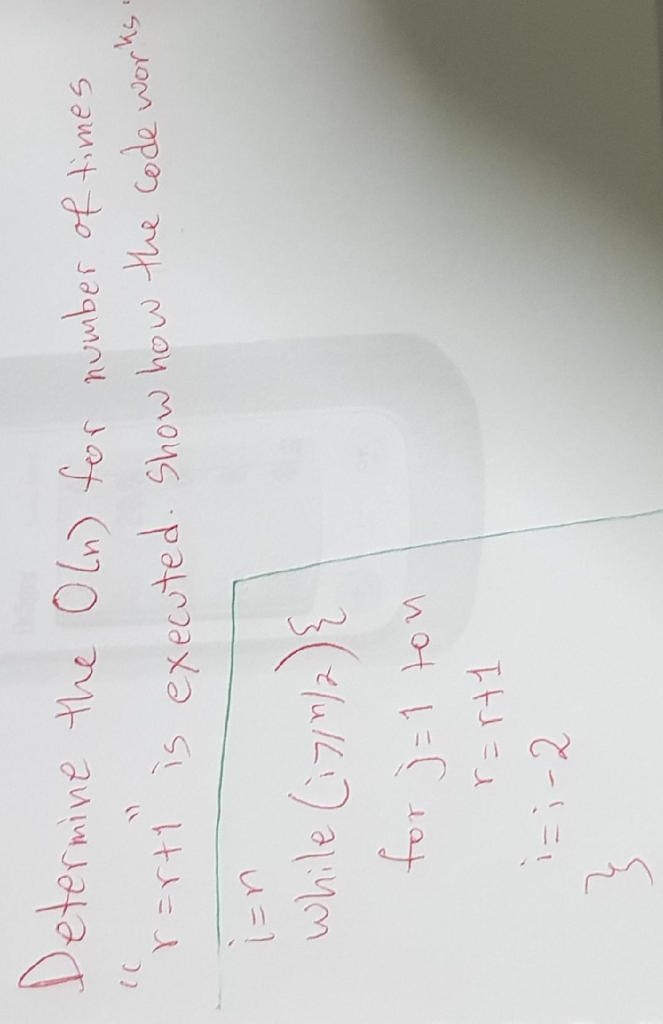 Determine the O(n) for number of times
"r=r+1" is executed. Show how the code works.
i=n
while (i>/n/2){
for j=1 to n
r=r+1
i=i-2
}